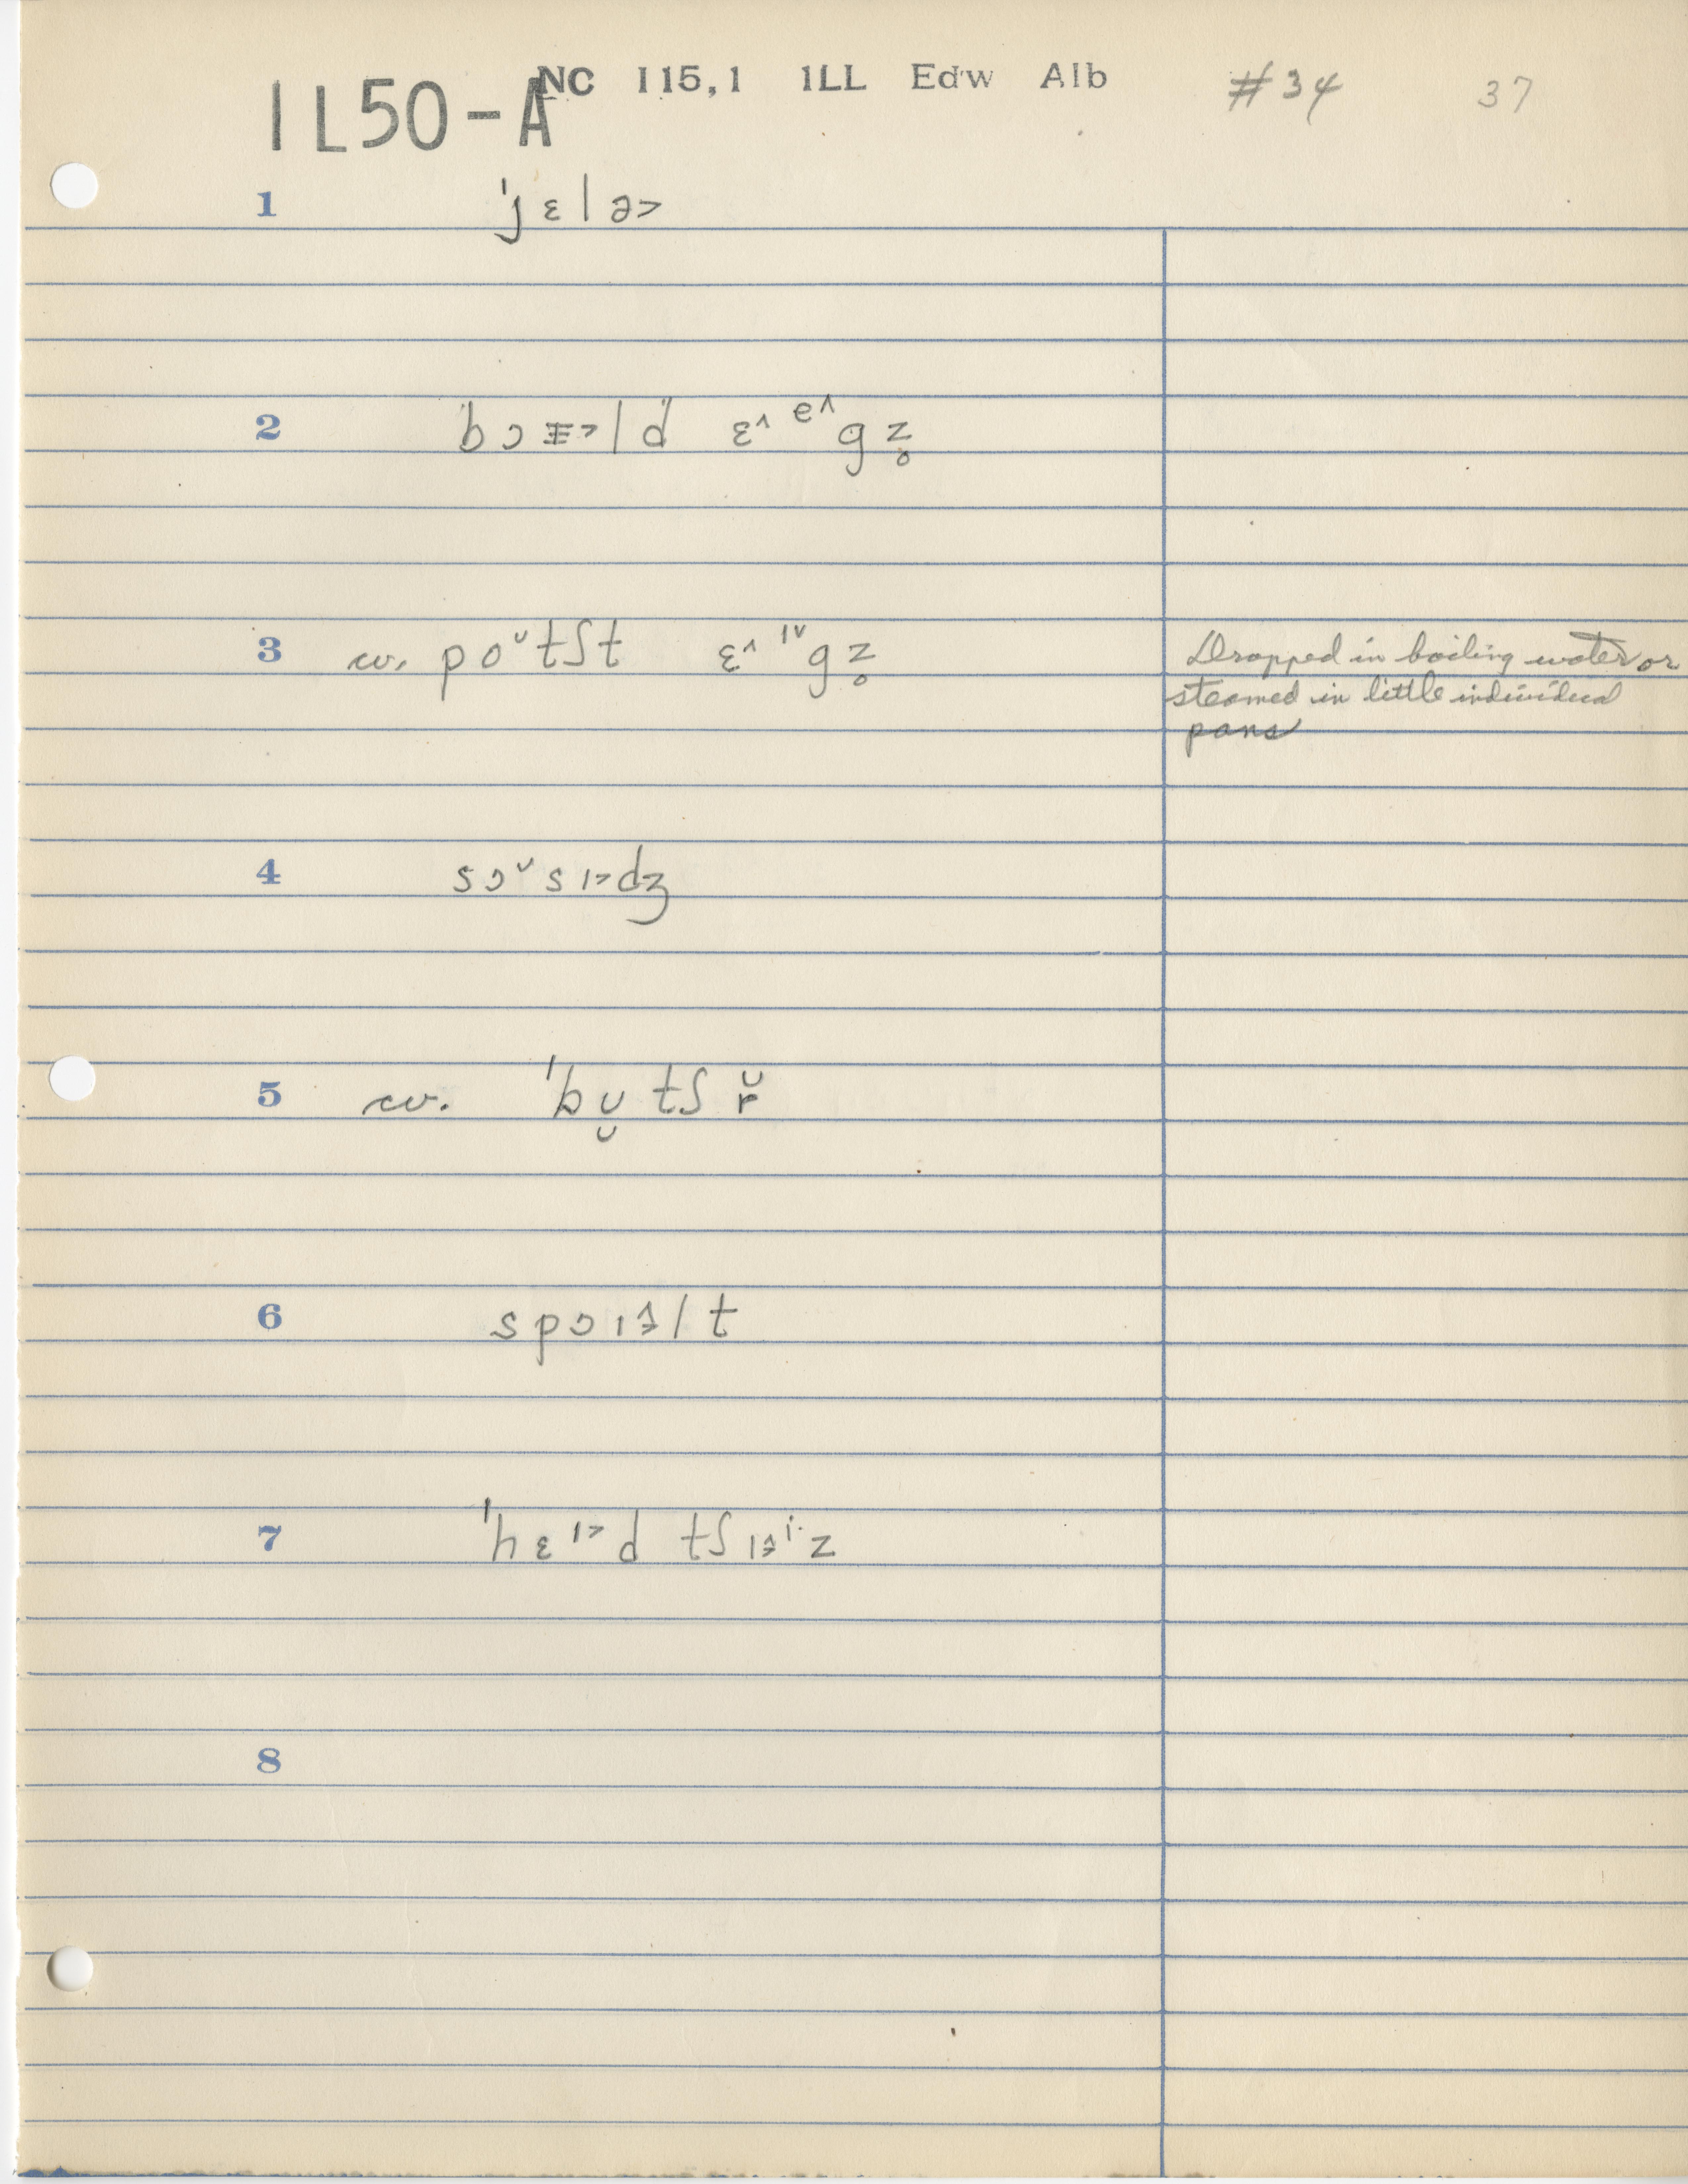 IL50-A NC 115,1 ILL Edw Alb #34 37
1 ˈjɛlə˃
2 bɔɪ̵˃ld ɛ˄ᵉ˄gz̥
3 cv. poᵛtʃt ɛ˄ᶦᵛgz̥ Dropped in boiling water or
steamed in little individual
pans
4 sɔᵛsɪ˃dʒ
5 cv. ˈbʊ̬tʃɚ̌
6 spɔɪə̂lt
7 ˈhɛᶦ˃d tʃɪ‍ᶦ·z
8